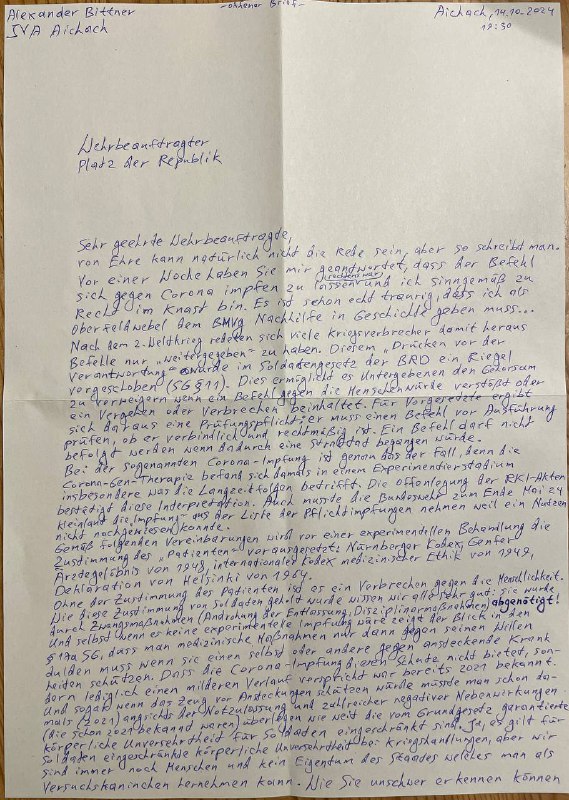 Alexander Bittner
-offener Brief-
Aichach, 14.10.2024
JVA Aichach
12:30
Wehrbeauftragter
Platz der Republik
Sehr geehrte Wehrbeauftragte,
von Ehre kann natürlich nicht die Rede sein, aber so schreibt man.
Vor einer Woche haben Sie mir geantwortet, dass der Befehl
sich gegen Corona impfen zu lassen rechtens war und ich sinngemäß zu
Recht im Knast bin. Es ist schon echt traurig, dass ich als
Oberfeldwebel dem BMVg Nachhilfe in Geschichte geben muss...
Nach dem 2. Weltkrieg redeten sich viele Kriegsverbrecher damit heraus
Befelle nur „weitergegeben" zu haben. Diesem „Drücken vor der
Verantwortung" wurde im Soldatengesetz der BRD ein Riegel
vorgeschoben (SG §11). Dies ermöglicht es Untergebenen den Gehorsam
zu verweigern wenn ein Befehl gegen die Menschenwürde verstößt oder
ein Vergehen oder Verbrechen beinhaltet. Für Vorgesetzte ergibt
sich daraus eine Prüfungspflicht: er muss einen Befehl vor Ausführung
prüfen, ob er verbindlich und rechtmäßig ist. Ein Befehl darf nicht
befolgt werden wenn dadurch eine Straftat begangen würde.
Bei der sogenannten Corona-Impfung ist genau das der Fall, denn die
Corona-Gen-Therapie befand sich damals in einem Experimentierstadium
insbesondere was die Langzeitfolgen betrifft. Die Offenlegung der RKI-Akten
bestätigt diese Interpretation. Auch musste die Bundeswehr zum Ende Mai 24
kleinlaut die „Impfung" aus der Liste der Pflichtimpfungen nehmen weil ein Nutzen
nicht nachgewiesen konnde.
Gemäß folgenden Vereinbarungen wird vor einer experimentellen Behandlung die
Zustimmung des „Patienten" vorausgesetzt: Nürnberger Kodex, Genfer
Ärztegelöbnis von 1948, internationaler Kodex medizinischer Ethik von 1949,
Deklaration von Helsinki von 1964.
Ohne der Zustimmung des Patienten ist es ein Verbrechen gegen die Menschlichkeit.
Wie diese Zustimmung von Soldaten geholt wurde wissen wir alle sehr gut: sie wurde
durch Zwangsmaßnahmen (Androhung der Entlassung, Disziplinarmaßnahmen) abgenötigt!
Und selbst wenn es keine experimentele Impfung wäre zeigt der Blick in den
§ 17a SG, dass man medizinische Maßnahmen nur dann gegen seinen Willen
dulden muss wenn sie einen selbst oder andere gegen ansteckende Krank
heiten schützen. Dass die Corona-Impfung diesen Schutz nicht bietet, son-
dern lediglich einen milderen Verlauf verspricht war bereits 2021 bekannt.
Und sogar wenn das Zeug vor Ansteckungen schützen würde müsste man schon da-
mals (2021) angsichts der Notzulassung und zahlreicher negativer Nebenwirkungen
(die schon 2021 bekannt waren) überlegen wie weit die vom Grundgesetz garantierte
körperliche Unversehrtheit für Soldaten eingeschränkt sind. Ja, es gilt für
Soldaten eingeschränkte körperliche Unversehrtheit bei Kriegshandlungen, aber wir
sind immer noch Menschen und kein Eigentum des Staades welches man als
Versuchskaninchen hernehmen kann. Wie Sie unschwer erkennen können